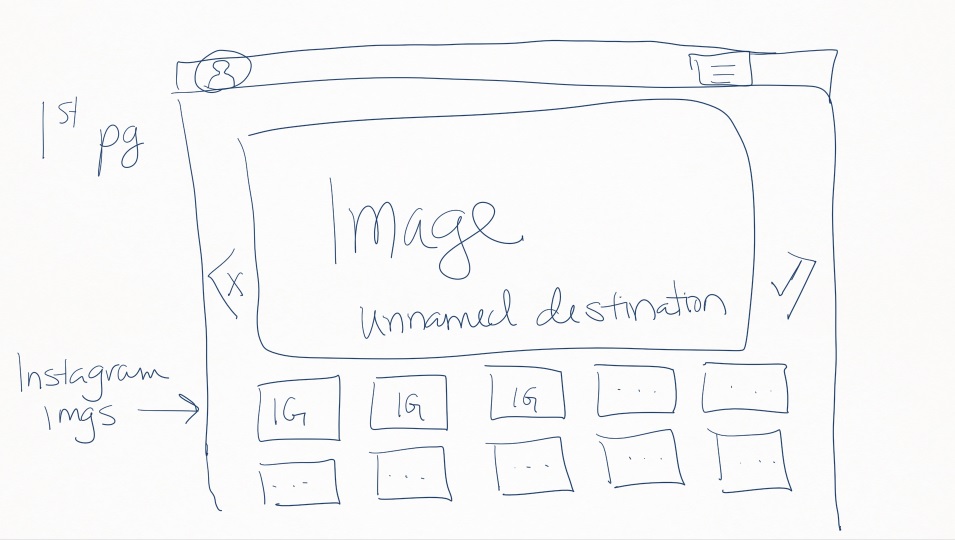 1st pg
Image
unnamed destination
x
Instagram
imgs
IG IG IG ... ...
... ... ... ... ...